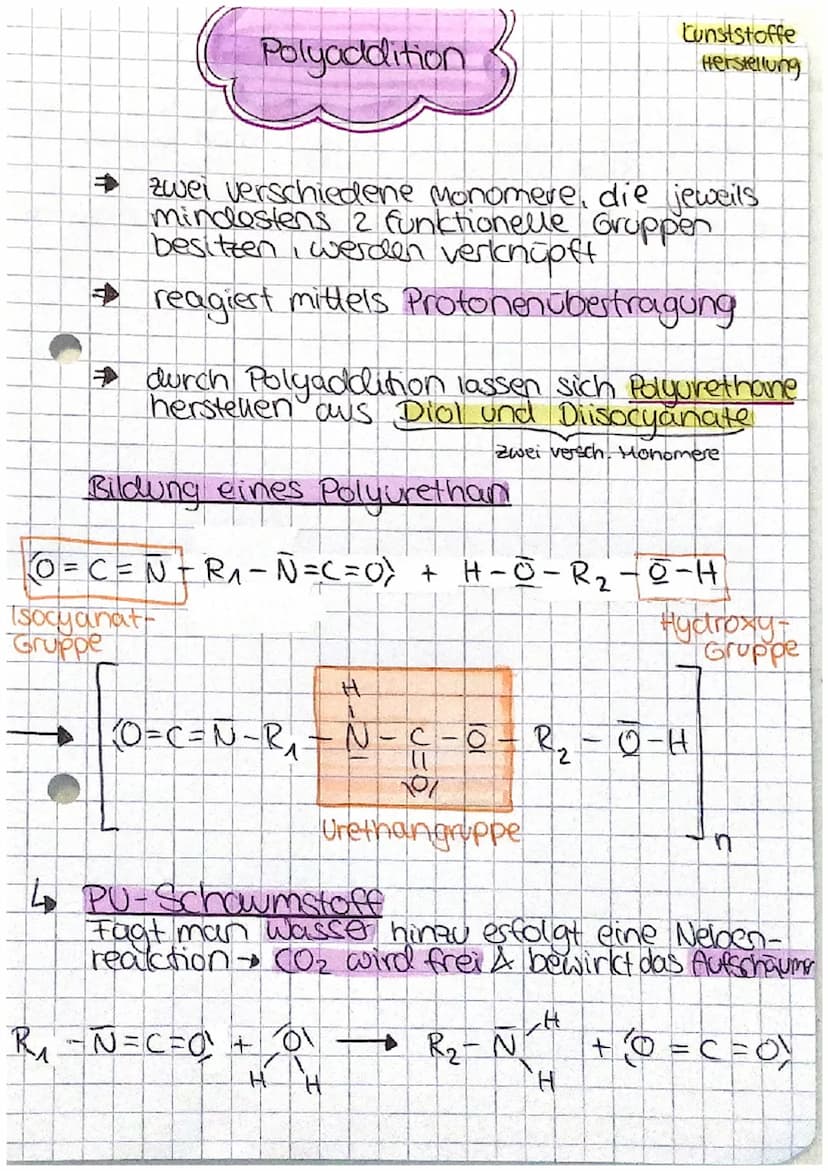 Polyaddition
Kunststoffe
Herstellung
⇒ zwei verschiedene Monomere, die jeweils
mindestens 2 funktionelle Gruppen
besitzen, werden verknüpft
⇒ reagiert mittels Protonenübertragung
⇒ durch Polyaddition lassen sich Polyurethane
herstellen aus Diol und Diisocyanate
zwei versch. Monomere
Bildung eines Polyurethan
⟨O=C=N̄-R₁-N̄=C=O⟩ + H-O̲̅-R₂-O̲̅-H
Isocyanat-
Gruppe
Hydroxy-
Gruppe
H
→ [⟨O=C=N̄-R₁-N̲-C-O̲̅-R₂-O̲̅-H]n
O
Urethangruppe
↳ PU-Schaumstoff
Fügt man Wasser hinzu erfolgt eine Neben-
reaktion → CO₂ wird frei & bewirkt das Aufschäumen
R₁-N̄=C=O + O → R₂-N̄ H + ⟨O=C=O⟩
H H H